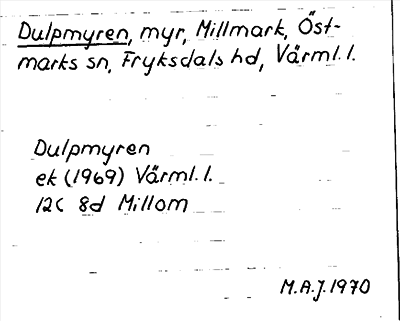 Dulpmyren, myr, Millmark, Öst-
marks sn, Fryksdals hd, Värml. l.
Dulpmyren
ek (1969) Värml. l.
12C 8d Millom
M.A.J. 1970